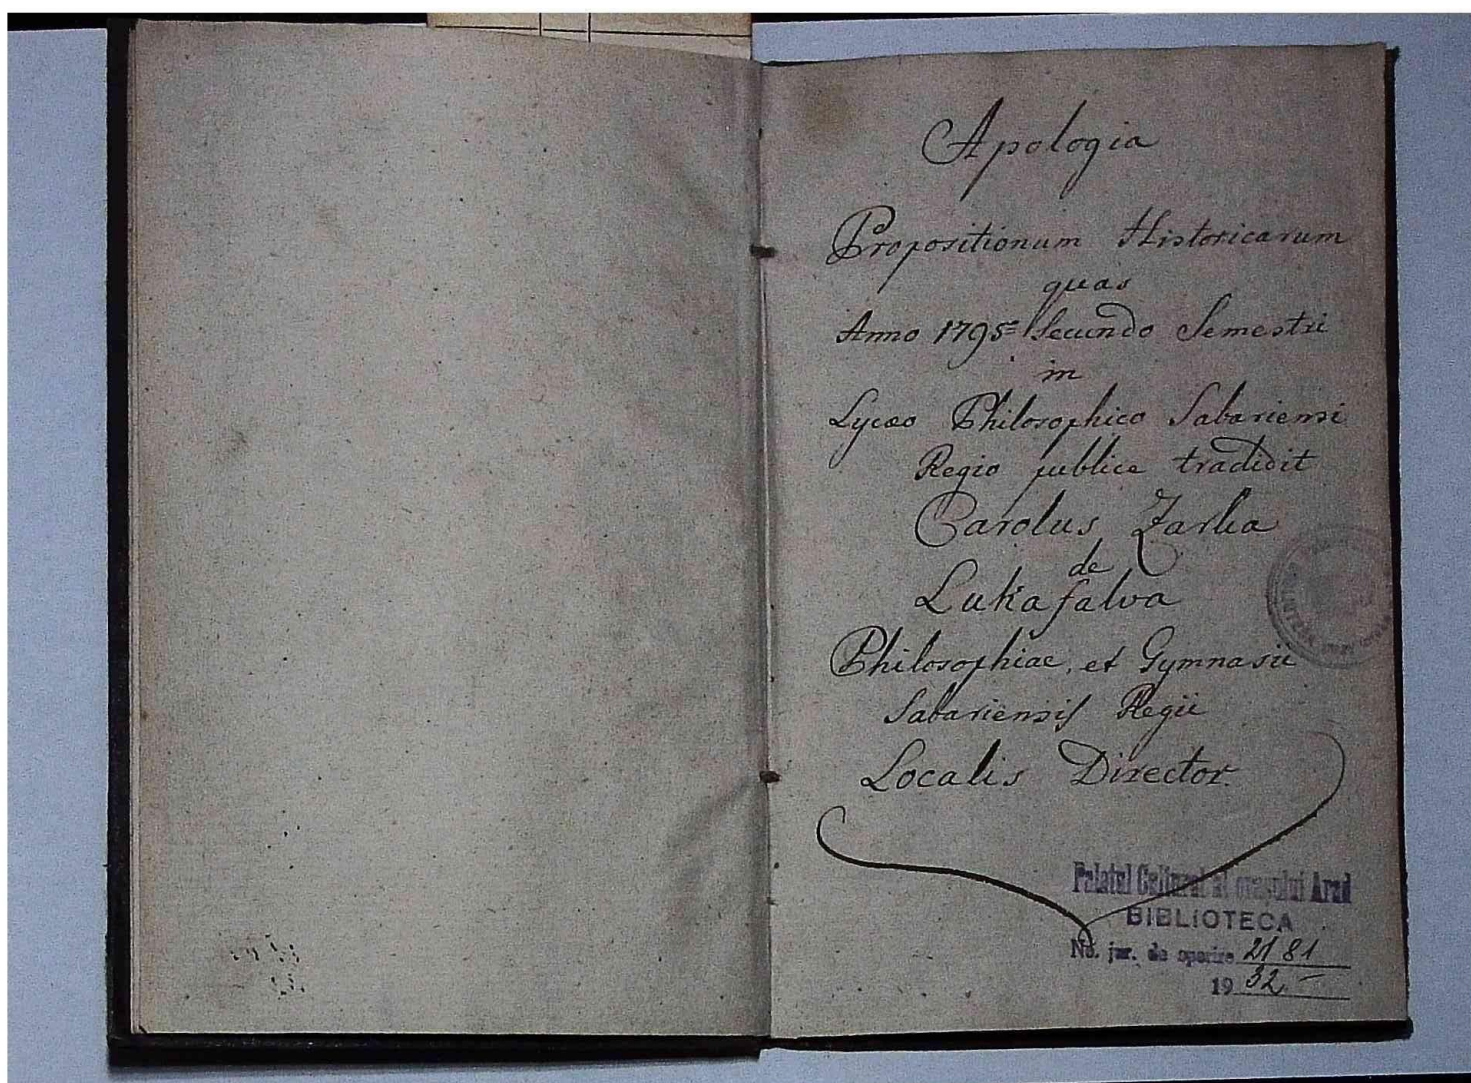 Apologia
Propositionum Historicarum
quas
Anno 1795= Secundo Semestri
in
Lycæo Philosophico Sabariensi
Regio publice tradidit
Carolus Zarka
de
Lukafalva
Philosophiae, et Gymnasii
Sabariensis Regii
Localis Director.
Palatul Cultural al orașului Arad
BIBLIOTECA
No. jur. de operire 2181
19 32